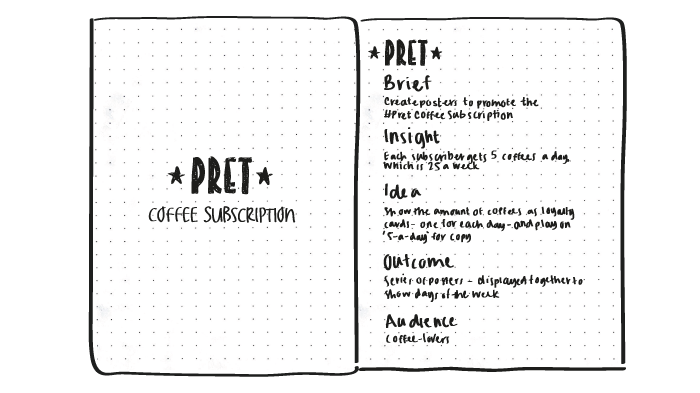 ★PRET★
COFFEE SUBSCRIPTION
★PRET★
Brief
Create posters to promote the
#Pret Coffee Subscription
Insight
Each subscriber gets 5 coffees a day,
which is 25 a week
Idea
Show the amount of coffees as loyalty
cards - one for each day - and play on
'5-a-day' for copy
Outcome
Series of posters - displayed together to
show days of the week
Audience
Coffee-lovers